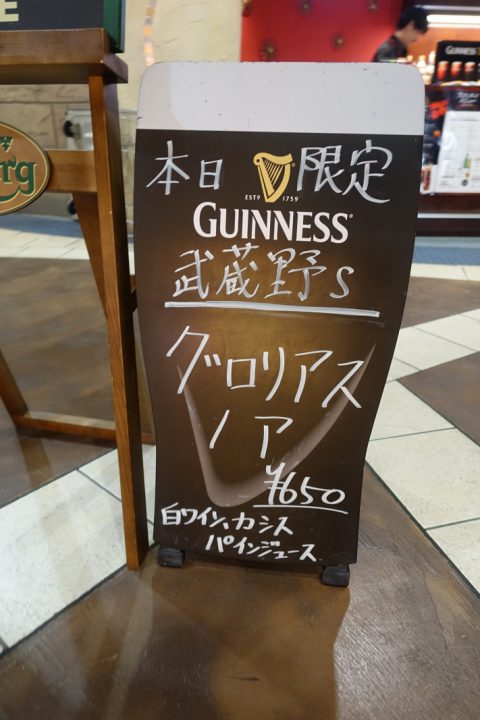 E
rg
本日 限定
ESTD 1759
GUINNESS
武蔵野S
グロリアス
ノア
¥650
白ワイン、カシス
パインジュース
GUINNESS